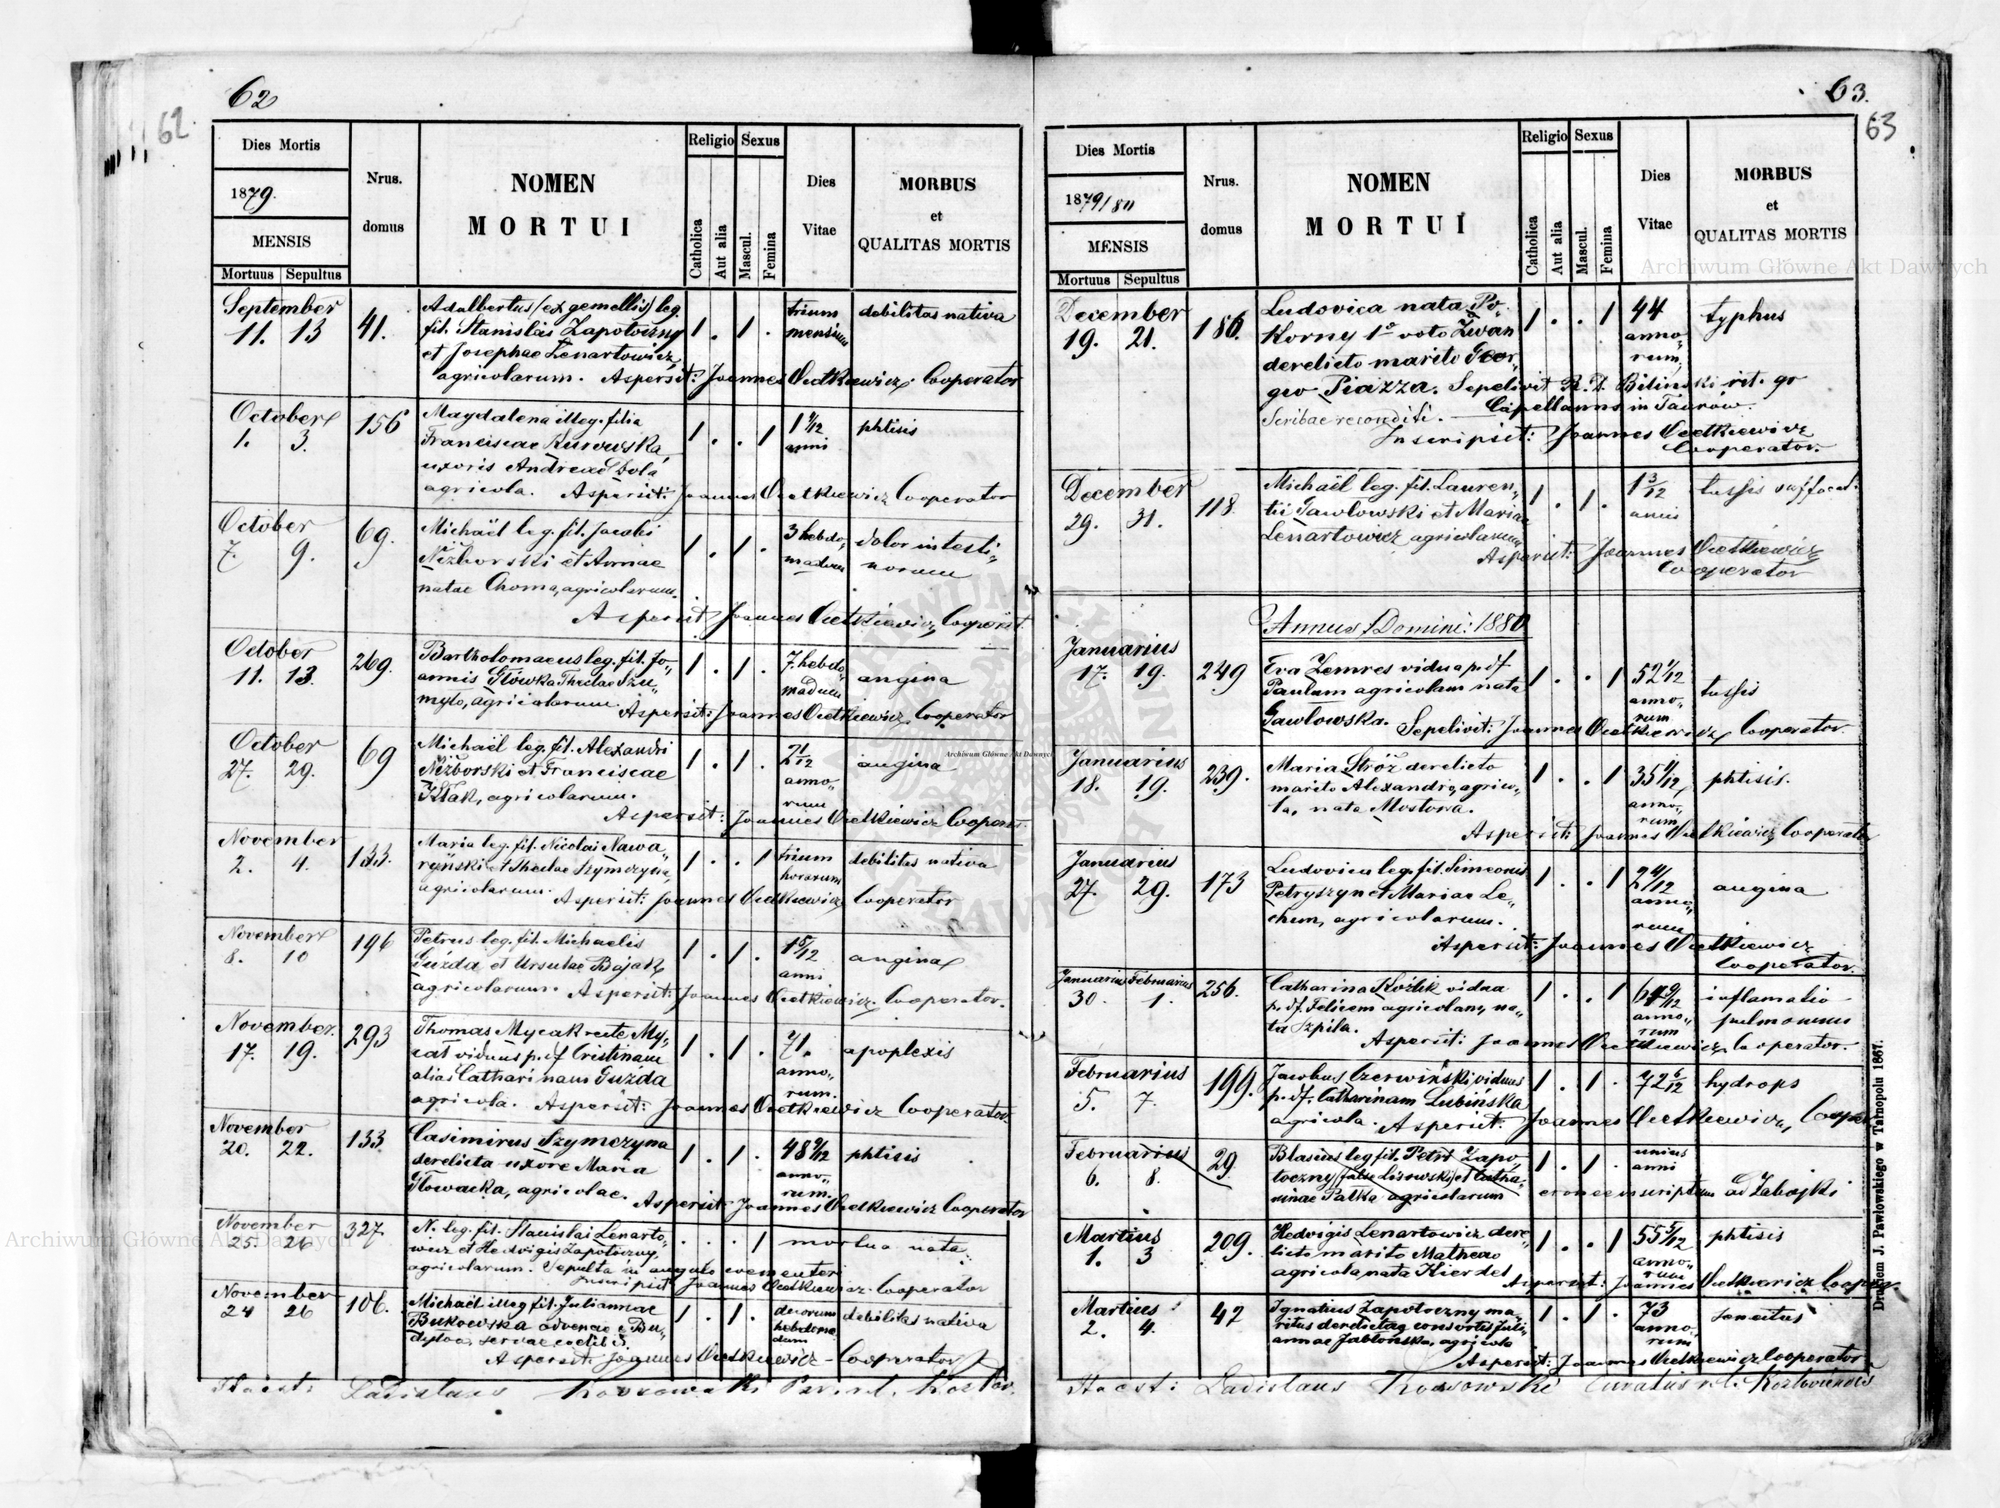 62
62.
Dies Mortis
1879.
MENSIS
Mortuus Sepultus
Nrus.
domus
NOMEN
MORTUI
Religio
Catholica
Aut alia
Sexus
Mascul.
Femina
Dies
Vitae
MORBUS
et
QUALITAS MORTIS
September
11. 13
41.
Adalbertus (ex gemellis) leg.
fil. Stanislai Zapotoczny
et Josephae Lenartowicz
agricolarum. Aspersit: Joannes Ocetkiewicz Cooperator
1 . 1 .
trium
mensium
debilitas nativa
October
1. 3.
156
Magdalena illeg. filia
Franciscae Kurowska,
uxoris Andreae
agricola. Aspersit: Joannes Ocetkiewicz Cooperator
1 . . 1
1 9/12
anni
phtisis
October
7. 9.
69.
Michaël leg. fil. Jacobi
Niżborski et Annae
natae Choma, agricolarum.
Aspersit Joannes Ocetkiewicz Cooperat.
1 . 1 .
3 hebdo-
madum
dolor intesti-
norum
October
11. 13.
269.
Bartholomaeus leg. fil. Jo-
annis Główka Theclae Szu-
myło, agricolarum Aspersit: Joannes Ocetkiewicz Cooperator
1 . 1 .
7. hebdo-
madum
angina
October
27. 29.
69
Michaël leg. fil. Alexandri
Niżborski et Franciscae
agricolarum.
Aspersit: Joannes Ocetkiewicz Cooperat.
1 . 1 .
2 1/12
anno-
rum
angina
November
2. 4.
133.
Maria leg. fil. Nicolai Nawa-
ryński et Theclae Szymczyna,
agricolarum. Aspersit: Joannes Ocetkiewicz Cooperator
1 . . 1
trium
horarum
debilitas nativa
November
8. 10
196
Petrus leg. fil. Michaelis
Guzda et Ursulae Bajak,
agricolarum. Aspersit: Joannes Ocetkiewicz Cooperator.
1 . 1 .
1 5/12
anni
angina
November.
17. 19.
293
Thomas Mycak recte My-
cat viduus p. df Cristinam
alias Catharinam Guzda
agricola. Aspersit: Joannes Ocetkiewicz Cooperator.
1 . 1 .
71.
anno-
rum.
apoplexis
November
20. 22.
133
Casimirus Szymczyna
derelicta uxore Maria
Głowacka, agricolae. Aspersit: Joannes Ocetkiewicz Cooperator
1 . 1 .
48 9/12
anno-
rum.
phtisis
November
25. 26
327.
N. leg. fil. Stanislai Lenarto-
wicz et Hedvigis Zapotoczny
agricolarum. Sepulta in angulo coementerii
Inscripsit Joannes Ocetkiewicz Cooperator
. . . 1
mortua nata.
November
24 26
106.
Michaël illeg. fil. Juliannae
Bukowska advenae e Bu-
servae
Aspersit: Joannes Ocetkiewicz - Cooperator
1 . 1 .
duorum
hebdoma
dum
debilitas nativa
Ladislaus Kossowski
63.
63
Dies Mortis
1879/80
MENSIS
Mortuus Sepultus
Nrus.
domus
NOMEN
MORTUI
Religio
Catholica
Aut alia
Sexus
Mascul.
Femina
Dies
Vitae
MORBUS
et
QUALITAS MORTIS
December
19. 21.
186.
Ludovica nata Po-
korny 1º voto Zwan
derelicto marito Geor-
gio Piazza. Sepelivit R. D. Biliński rit. gr
Scribae reconditi. Capellanus in Taurów.
Inscripsit: Joannes Ocetkiewicz
Cooperator.
1 . . 1
44
anno-
rum,
typhus
December
29. 31.
118.
Michaël leg. fil. Lauren-
tii Gawłowski et Mariae
Lenartowicz agricolarum.
Aspersit: Joannes Ocetkiewicz
Cooperator
1 . 1 .
1 3/12
anni
tussis suffocat.
Annus Domini: 1880
Januarius
17. 19.
249
Eva Zemres vidua p. df
Paulum agricolam nata
Gawłowska. Sepelivit: Joannes Ocetkiewicz Cooperator.
1 . . 1
52 1/12
anno-
rum
tussis
Januarius
18. 19.
239.
Maria Stróż derelicto
marito Alexandro, agrico-
la, nata Mostowa.
Aspersit: Joannes Ocetkiewicz Cooperator
1 . . 1
35 1/12
anno-
rum
phtisis.
Januarius
27. 29.
173
Ludovica leg. fil. Simeonis
Petryszyn et Mariae Le-
chem, agricolarum.
Aspersit: Joannes Ocetkiewicz
Cooperator.
1 . . 1
2 4/12
anno-
rum
angina
Januarius Februarius
30. 1.
256.
Catharina Koźlik vidua
p. df. Felicem agricolam, na-
ta Szpila.
Aspersit: Joannes Ocetkiewicz Cooperator.
1 . . 1
anno-
rum
inflamatio
pulmonum
Februarius
5. 7.
199.
Jacobus Czerwiński viduus
p. df. Catharinam Lubińska
agricola. Aspersit: Joannes Ocetkiewicz, Cooper.
1 . 1 .
72 6/12
hydrops
Februarius
6. 8.
29.
Blasius leg. fil. Petri Zapo-
toczny (false Lisowski) et Catha-
rinae Pałka agricolarum
1 . 1 .
unius
anni
eronee inscriptum ad Zabojki
Martius
1. 3
209.
Hedvigis Lenartowicz dere-
licto marito Matheo
agricola nata Kierdel
Aspersit: Joannes Ocetkiewicz Cooper.
1 . . 1
55 5/12
anno-
rum
phtisis
Martius
2. 4.
47
Ignatius Zapotoczny ma-
ritus derelictae consortis Juli-
annae Jabłońska, agricola
Aspersit: Joannes Ocetkiewicz Cooperator
1 . 1 .
73
anno-
rum
senectus
Ladislaus Kossowski Curatus r. l. Kozłoviensis
Drukiem J. Pawłowskiego w Tarnopolu 1867.
Archiwum Główne Akt Dawnych
Archiwum Główne Akt Dawnych
Archiwum Główne Akt Dawnych